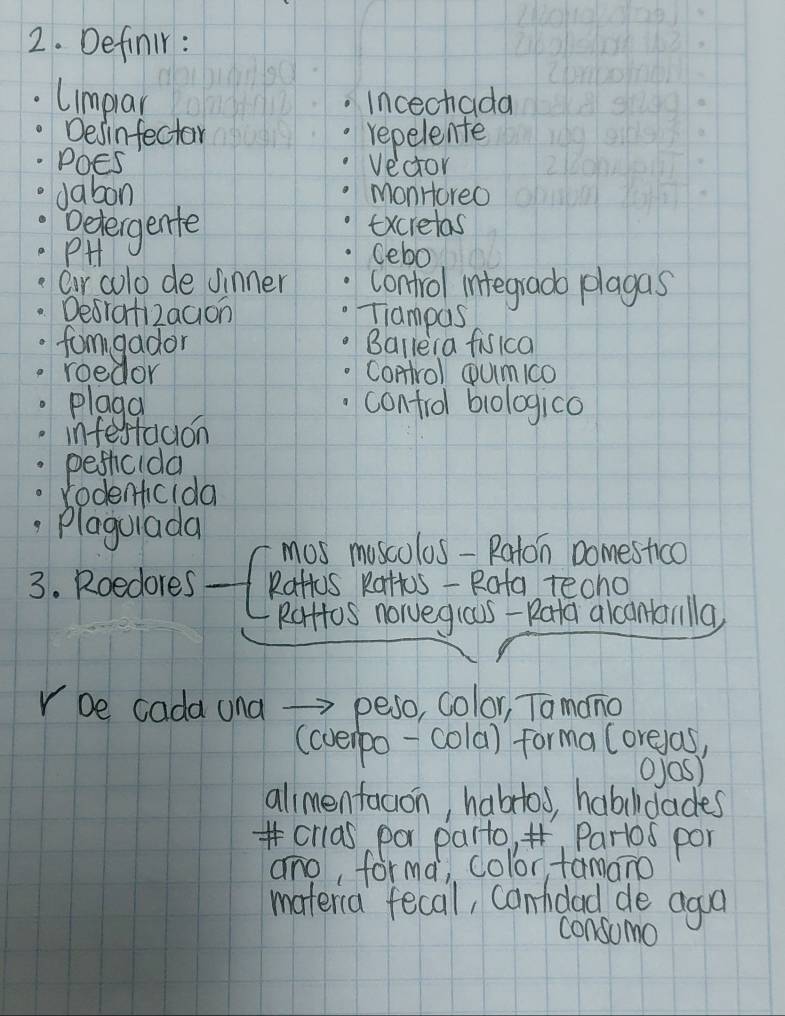 2. Definir:
• Limpiar
• Desinfectar
• POES
• Jabon
• Detergente
• PH
• Circulo de Sinner
• Desratización
• fomigador
• roedor
• plaga
• infestación
• pesticida
• rodenticida
• Plaguiada
• Incechada
• repelente
• Vector
• Monitoreo
• Excretas
• Cebo
• Control integrado plagas
• Trampas
• Barrera fisica
• Control Quimico
• control biologico
3. Roedores
mos moscolos - Ratón Domestico
Rattus Rattus - Rata Techo
Rattos norvegicus - Rata alcantarilla
r De cada una → peso, Color, Tamaño
(cuerpo - cola) forma (orejas,
ojos)
alimentación, habitos, habilidades
# crias por parto, # Partos por
ano, forma, color, tamaño
materia fecal, Cantidad de agua
consumo